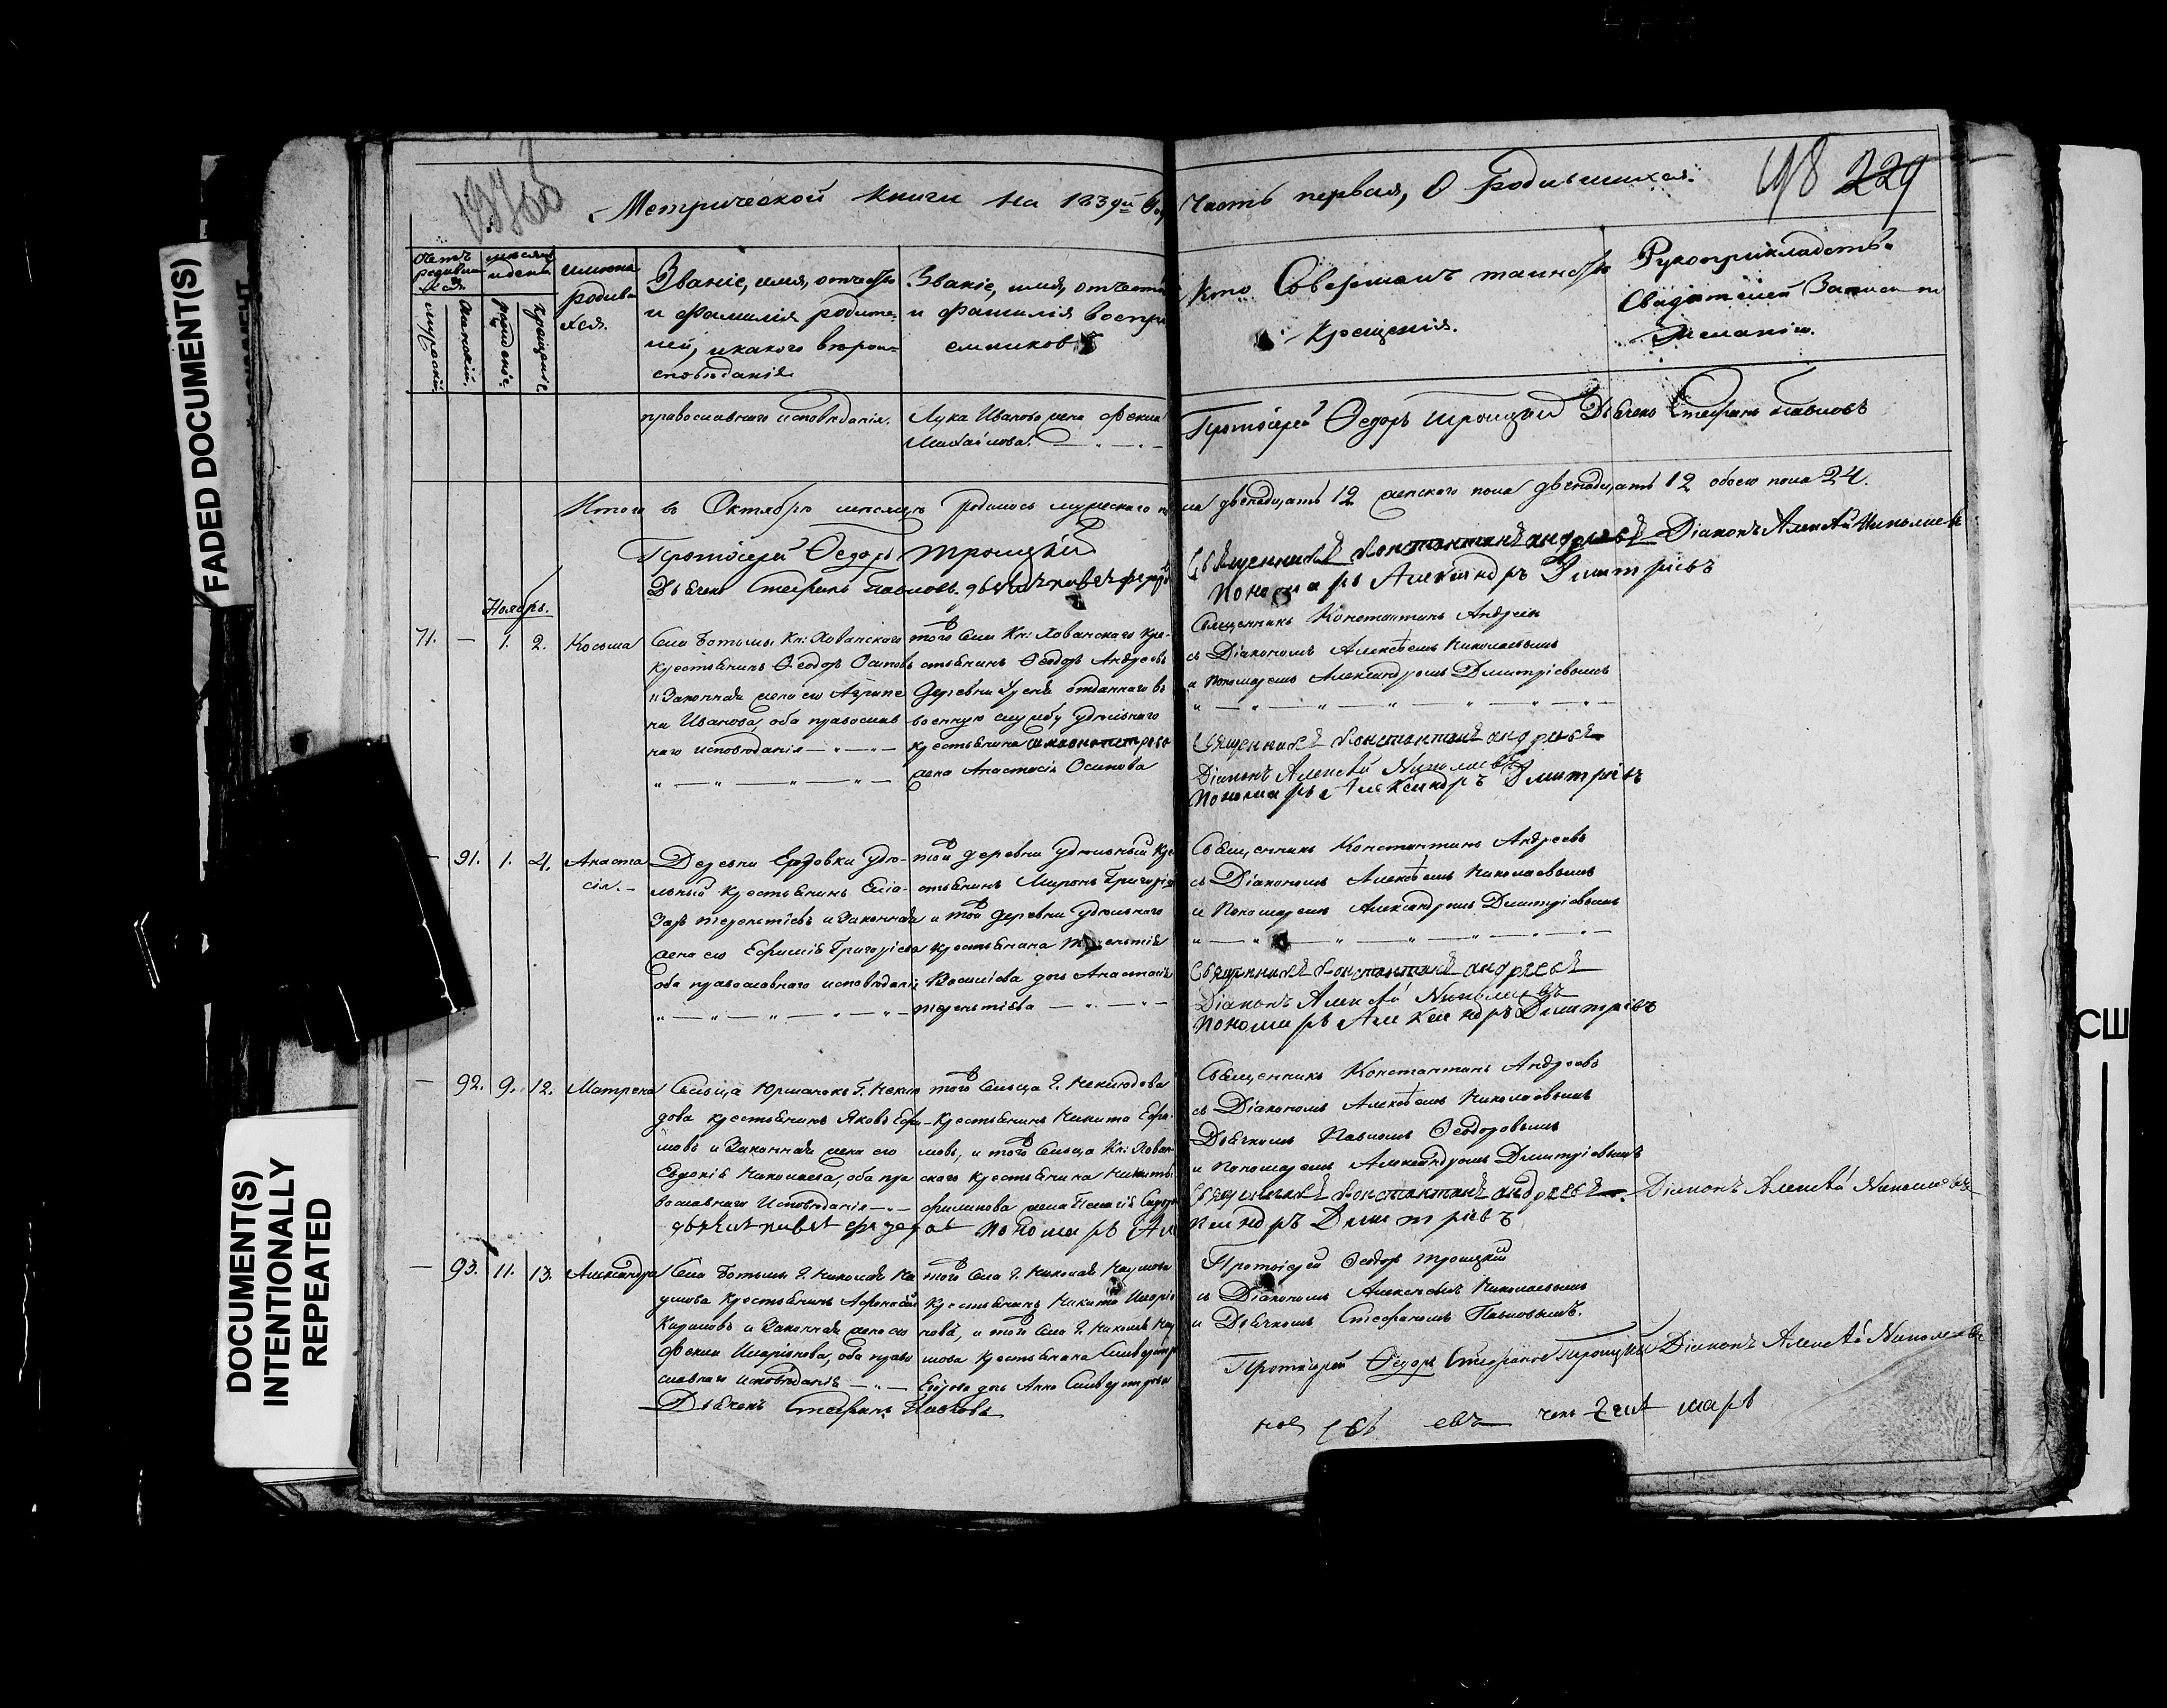 FADED DOCUMENT(S)
DOCUMENT(S)
INTENTIONALLY
REPEATED
Метрической книги на 1839й Часть первая, О родившихся.
198 229
Счетъ родивших
мужеска
женскій
мѣсяцъ и день
рожденіе
крещеніе
имяна родив
хся.
Званіе, имя, отчество
и фамилія родите-
лей, и какого вѣроис-
повѣданія
Званіе, имя, отчество
и фамилія воспрі
емниковъ
Кто Совершалъ таинство
Крещенія.
Рукоприкладство
Свидѣтелей Записи по
желанію.
православнаго исповѣданія.
Лука Иванова жена
Михайлова.
Протоіерей Ѳедоръ Троицкій Дьячекъ Стефанъ Павловъ
Итого въ Октябрѣ мѣсяцѣ родилось мужескаго по ла двенадцать 12 женскаго пола двенадцать 12 обоего пола 24.
Протоіерей Ѳедоръ Троицкій Священникъ Константинъ Андреевъ Діаконъ Алексѣй Николаевъ
Дьячекъ Стефанъ Павловъ. Пономарь Александръ Димитріевъ
Ноябрь.
71. — 1. 2. Косьма
Села Ботьмы Кн: Хованскаго
крестьянинъ Ѳеодоръ Осиповъ
и Законная жена его Агрипе
на Иванова, оба православ
наго исповѣданія
того Села Кн: Хованскаго кре-
стьянинъ Ѳеодоръ Андреевъ
деревни отданнаго въ
военную службу удѣльнаго
крестьянина
жена Анастасія Осипова
Священникъ Константинъ Андреевъ
съ Діакономъ Алексѣемъ Николаевымъ
и Пономаремъ Александромъ Димитріевымъ
Священникъ Константинъ Андреевъ
Діаконъ Алексѣй Николаевъ
Пономарь Александръ Димитріевъ
— 91. 1. 4. Анаста
сія. —
Деревни удѣ-
льный крестьянинъ Еліа-
заръ Терентіевъ и Законная
жена его Ефимія Григорьева
оба православнаго исповѣданія
той деревни удѣльный кре
стьянинъ Миронъ Григорьевъ
и той деревни удѣльнаго
крестьянина Терентія
Васильева дочь Анастасія
Терентіева
Священникъ Константинъ Андреевъ
съ Діакономъ Алексѣемъ Николаевымъ
и Пономаремъ Александромъ Димитріевымъ
Священникъ Константинъ Андреевъ
Діаконъ Алексѣй Николаевъ
Пономарь Александръ Димитріевъ
— 92. 9. 12. Матрена
Сельца Юрманокъ Г. Неклю
дова крестьянинъ Яковъ Ефи-
мовъ и Законная жена его
Евдокія Николаева, оба пра
вославнаго Исповѣданія
того Сельца Г. Неклюдова
крестьянинъ Никита Ефи-
мовъ, и того Сельца Кн: Хован
скаго крестьянина Никиты
Филипова жена Пелагія
Священникъ Константинъ Андреевъ
съ Діакономъ Алексѣемъ Николаевымъ
Дьячкомъ Павломъ Ѳеодоровымъ
и Пономаремъ Александромъ Димитріевымъ
Священникъ Константинъ Андреевъ Діаконъ Алексѣй Николаевъ
Пономарь Александръ Димитріевъ
— 93. 11. 13. Александра
Села Ботьмы Г. Николая На
умова крестьянинъ Афанасій
Кириловъ и Законная жена его
Иларіонова, оба право
славнаго исповѣданія
того Села Г. Николая Наумова
крестьянинъ Никита Иларіо
новъ, и того Села Г. Николая Нау
мова крестьянина Сильверстра
Егорова дочь Анна Сильверстрова
Протоіерей Ѳеодоръ Троицкій
съ Діакономъ Алексѣемъ Николаевымъ
и Дьячкомъ Стефаномъ Павловымъ.
Протоіерей Ѳедоръ Троицкій Діаконъ Алексѣй Николаевъ
Дьячекъ Стефанъ Павловъ
СШ